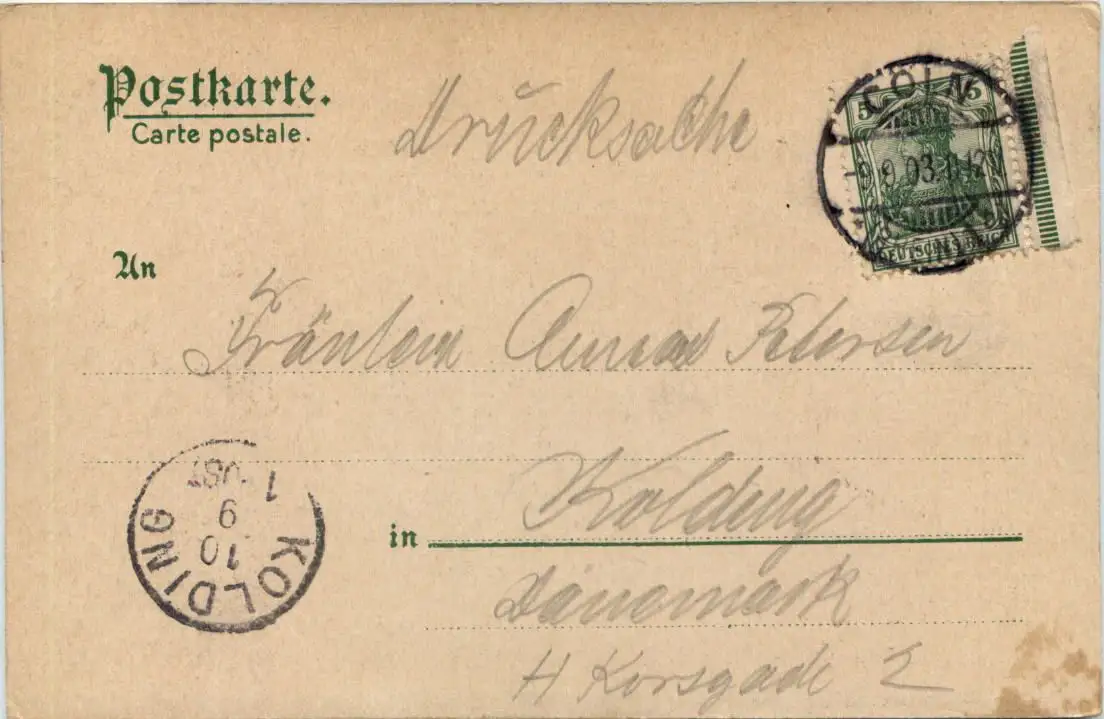 Postkarte.
Carte postale.
Drucksache
5 5
CÖLN
9.9.03.11-12V
DEUTSCHES REICH
An
Fräulein Anna Petersen
in Kolding
Dänemark
Korsgade
KOLDING
10
9
1 UST